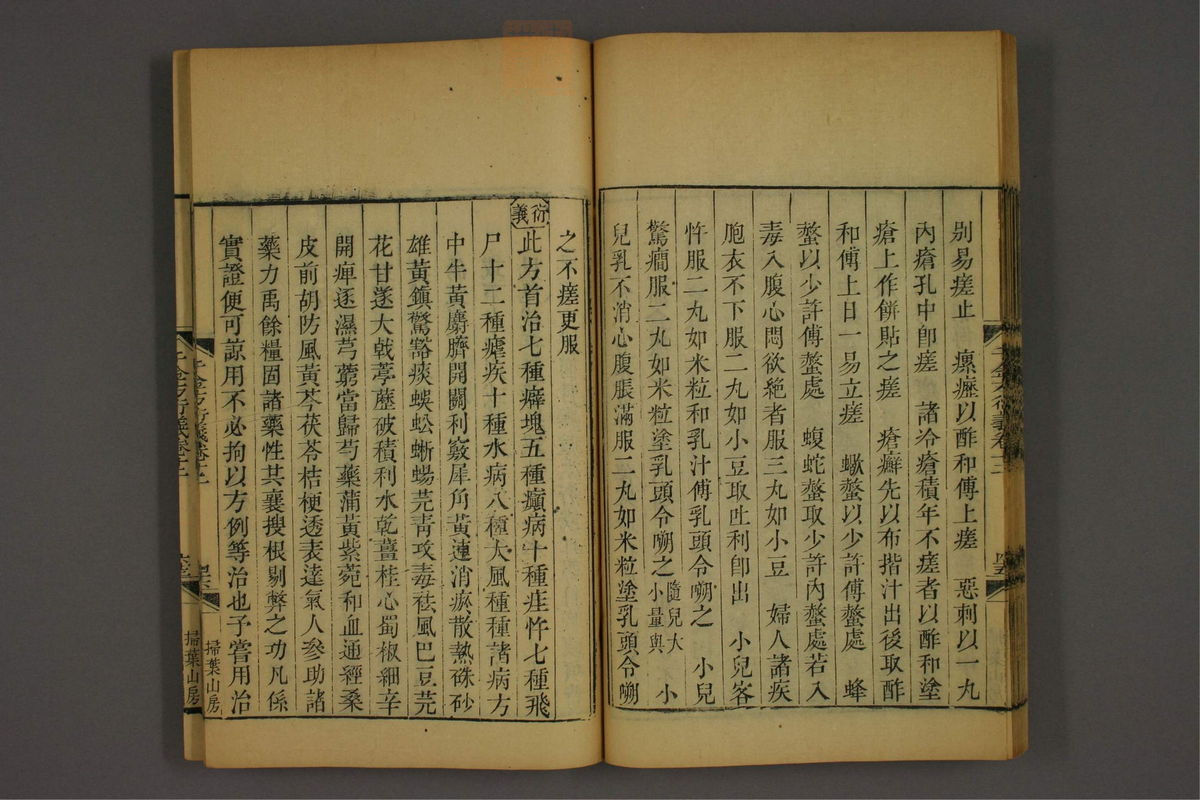 別易瘥止　瘰癧以酢和傅上瘥　惡刺以一丸
內瘡孔中卽瘥　諸冷瘡積年不瘥者以酢和塗
瘡上作餅貼之瘥　瘡癬先以布揩汁出後取酢
和傅上日一易立瘥　蠍螫以少許傅螫處　蜂
螫以少許傅螫處　蝮蛇螫取少許內螫處若入
毒入腹心悶欲絶者服三丸如小豆　婦人諸疾
胞衣不下服二丸如小豆取吐利卽出　小兒客
忤服二丸如米粒和乳汁傅乳頭令嗍之　小兒
驚癎服二丸如米粒塗乳頭令嗍之隨兒大小量與　小
兒乳不消心腹脹滿服二丸如米粒塗乳頭令嗍
之不瘥更服
衍義此方首治七種癖塊五種癲病十種疰忤七種飛
尸十二種瘧疾十種水病八種大風種種諸病方
中牛黃麝臍開關利竅犀角黃連消瘀散熱硃砂
雄黃鎮驚豁痰蜈蚣蜥蜴芫青攻毒祛風巴豆芫
花甘遂大戟葶藶破積利水乾薑桂心蜀椒細辛
開痺逐濕芎藭當歸芍藥蒲黃紫菀和血通經桑
皮前胡防風黃芩茯苓桔梗透表達氣人參助諸
藥力禹餘糧固諸藥性其襄搜根剔弊之功凡係
實證便可諒用不必拘以方例等治也予嘗用治
千金方衍義卷十二
掃葉山房
掃葉山房